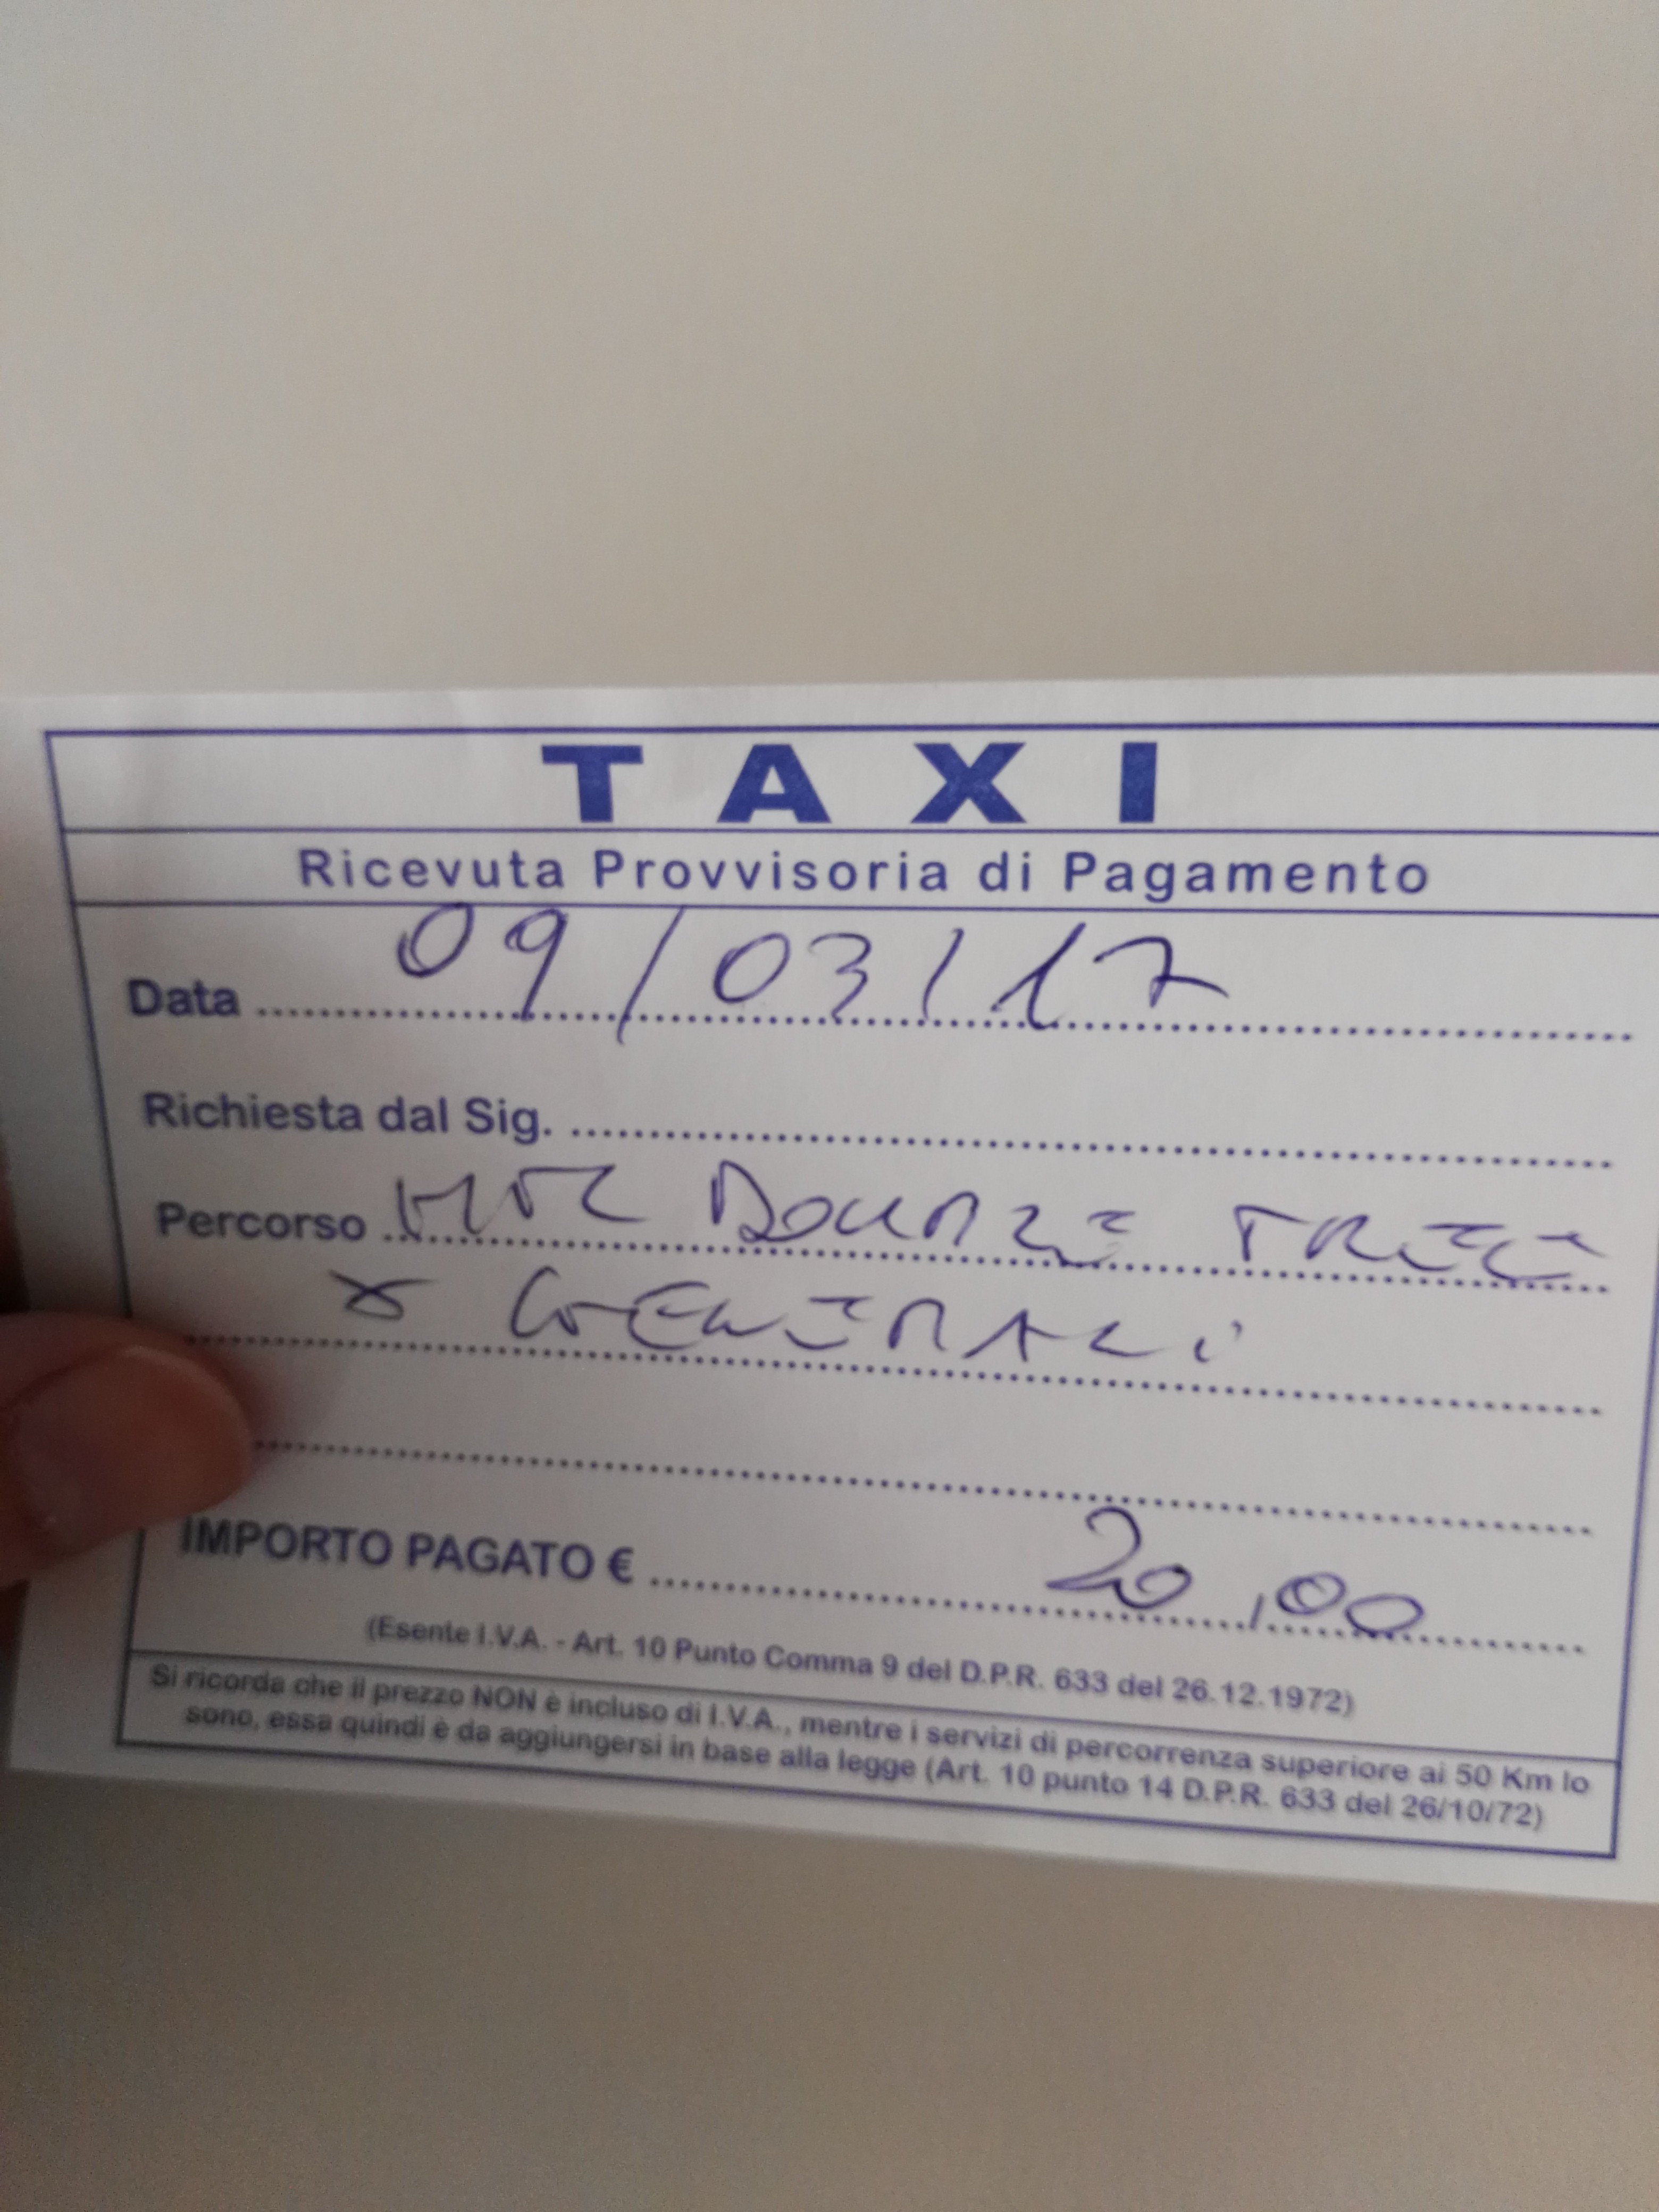 TAXI
Ricevuta Provvisoria di Pagamento
Data 09/03/17
Richiesta dal Sig.
Percorso TREE
x GENERALI
IMPORTO PAGATO € 20,00
(Esente I.V.A. - Art. 10 Punto Comma 9 del D.P.R. 633 del 26.12.1972)
Si ricorda che il prezzo NON è incluso di I.V.A., mentre i servizi di percorrenza superiore ai 50 Km lo
sono, essa quindi è da aggiungersi in base alla legge (Art. 10 punto 14 D.P.R. 633 del 26/10/72)